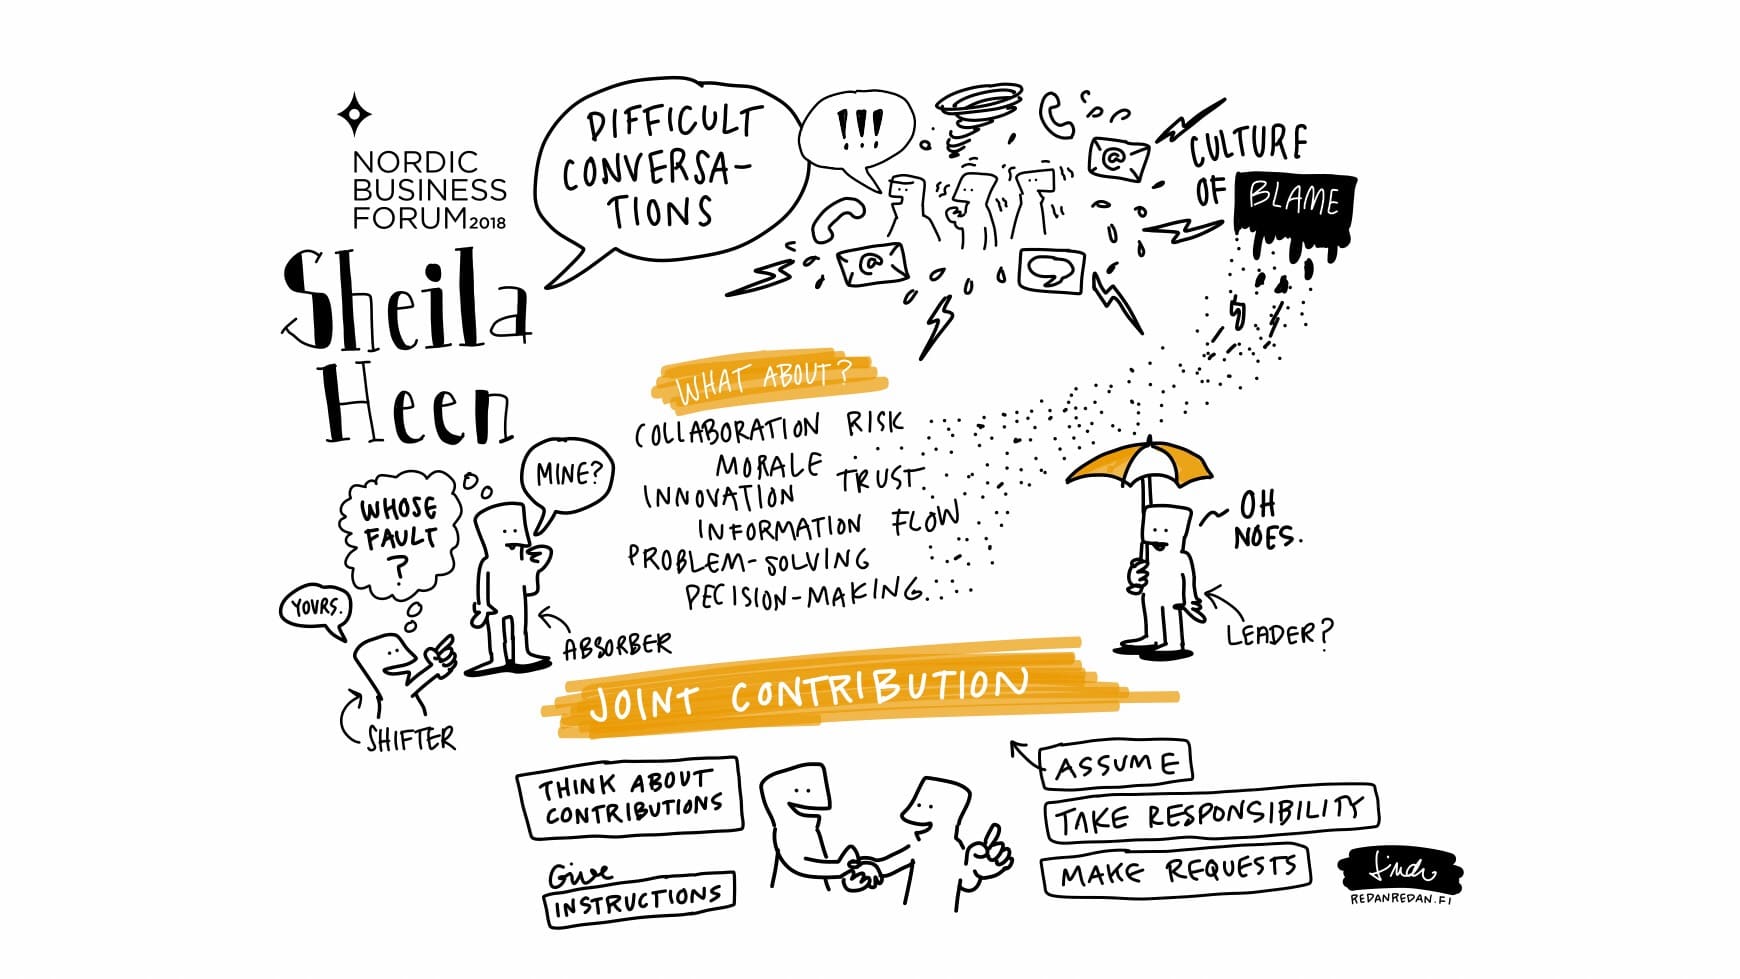 NORDIC
BUSINESS
FORUM2018
Sheila
Heen
DIFFICULT
CONVERSA-
TIONS
!!!
@
@
CULTURE
OF BLAME
WHAT ABOUT?
COLLABORATION RISK
MORALE
TRUST
INNOVATION
INFORMATION FLOW
PROBLEM-SOLVING
DECISION-MAKING...
WHOSE
FAULT
?
MINE?
YOURS.
ABSORBER
SHIFTER
OH
NOES.
LEADER?
JOINT CONTRIBUTION
THINK ABOUT
CONTRIBUTIONS
Give
INSTRUCTIONS
ASSUME
TAKE RESPONSIBILITY
MAKE REQUESTS
REDANREDAN.FI